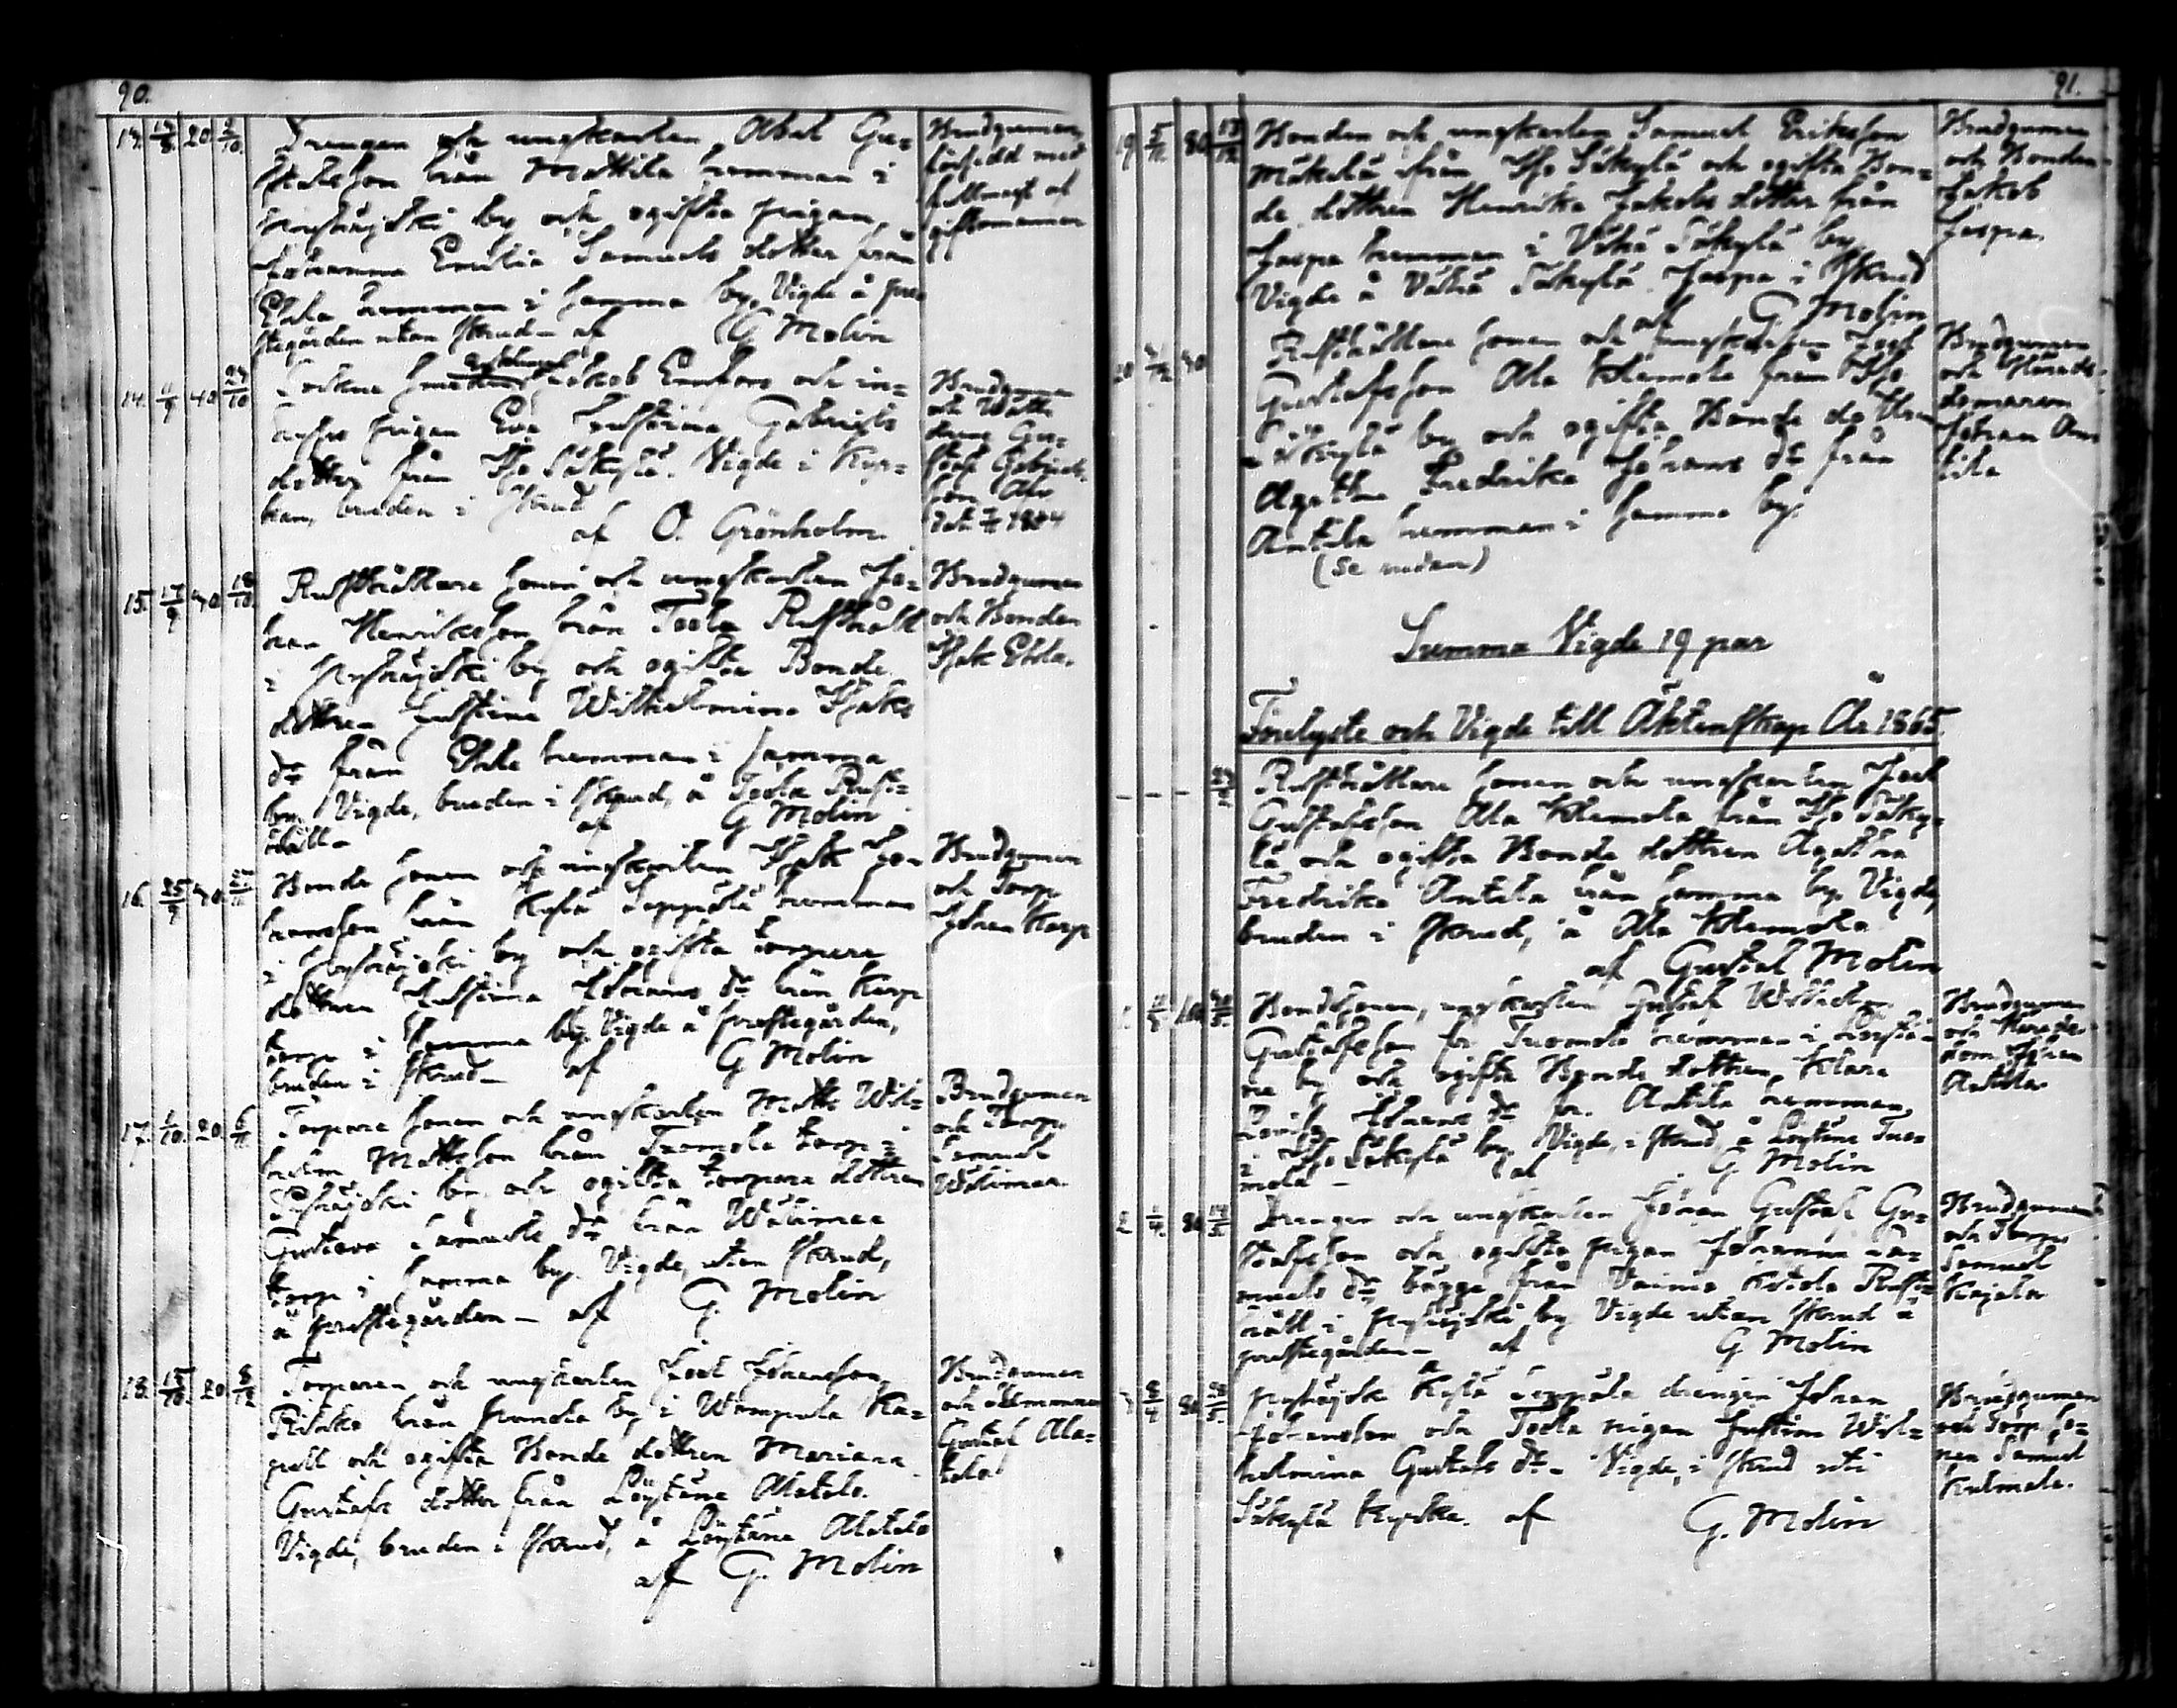 90.
20
Drengen och ungkarlen Abel Gu=
stafsson från Mattila hemman i
by och ogifta pigan
Johanna Emilia Samuels dotter från
Ehla hemman i samma by. Vigde å pre
stegården utan skrud af G Molin
Brudgumen,
försedd med
fullmagt af
giftomannen
14. 11/9 40 23/10
Jakob och in=
pigan Eva Justiina Gabriels
dotter från Iso Säkylä. Vigde i Kyr=
kan, bruden i skrud
af O. Grönholm.
Brudgumen
och
Gu=
staf Gabriels
son
15. 17/9 40 18/10
Rusthållare sonen och ungkarlen Jo=
han Henriksson från Toola Rusthåll
i by och ogifta Bonde
dottren Justiina Wilhelmina Isaks
dr från Ehla hemman i samma
by. Vigde, bruden i skrud, å Toola Rust=
håll - af G Molin
Brudgumen
och Bonden
Isak Ehla.
16. 25/9 40
Bonde sonen och ungkarlen Isak Jo=
hansson från Kylä Seppälä hemman
i by och ogifta torpare
dottren Justiina Johans dr från Karp
torp i samma by. Vigde å prestegården,
bruden i skrud - af G Molin
Brudgumen
och Torp.
Johan Karp
17. 1/10. 20. 6/11
Torpare sonen och ungkarlen Matts Wil=
helm Mattsson från Tuomola torp i
by och ogifta torpare dottren
Gustava Samuels dr från Wälimaa
torp i samma by. Vigde, utan skrud,
å prestegården - af G. Molin
Brudgumen
och Torp.
Samuel
Wälimaa.
18. 15/10. 20 8/12
Torparen och ungkarlen Joel Johansson
från by i Wampula Ka=
pell och ogifta Bonde dottren Mariana
Gustafs dotter från Löytäne Alatalo.
Vigde, bruden i skrud, å Löytäne Alatalo
af G. Molin
Brudgumen
och
Gustaf Ala=
talo
91.
19 5/11 80 13/12
Bonden och ungkarlen Samuel Eriksson
Mäkelä från Iso Säkylä och ogifta Bon=
de dottren Henrika Jakobs dotter från
Jaspa hemman i Vähä Säkylä by.
Vigde å Vähä Säkylä Jaspa i skrud
af G Molin
Brudgumen
och Bonden
Jakob
Jaspa.
20 40
Rusthållare sonen och ungkarlen Joel
Gustafsson Ala Klemola från Iso
Säkylä by och ogifta Bonde dottren
Agatha Fredrika Johans dr från
Antila hemman i samma by.
(se nedan)
Brudgumen
och Härads=
domaren
Johan An
tila
Summa Vigde 19 par
Förelyste och Vigde till Äktenskap År 1865.
- - -
Rusthållare sonen och ungkarlen Joel
Gustafsson Ala Klemola från Iso Säky=
lä och ogifta Bonde dottren Agatha
Fredrika Antila från samma by. Vigde,
bruden i skrud, å Ala Klemola
af Gustaf Molin
1.
Bondsonen, ungkarlen Gustaf Wilhelm
Gustafsson fr. Tuomola hemman i Löytä=
ne by och ogifta Bonde dottren Klara
Johans dr fr. Antila hemman
i Iso Säkylä by. Vigde, i skrud, å Löytäne Tuo=
mola - af G Molin
Brudgumen
och Härads=
dom. Johan
Antila
2
Drengen och ungkarlen Johan Gustaf Gu=
stafsson och ogifta pigan Johanna Sa=
muels dr, bägge från Rust=
håll i by. Vigde utan skrud å
prestegården - af G Molin
Brudgumen
och Torp.
Samuel
3
Kylä Seppälä drengen Johan
Johansson och Toola pigan Justiina Wil=
helmina Gustafs dr. Vigde, i skrud uti
Säkylä kyrka. af G. Molin
Brudgumen
och Torp. so=
nen Samuel